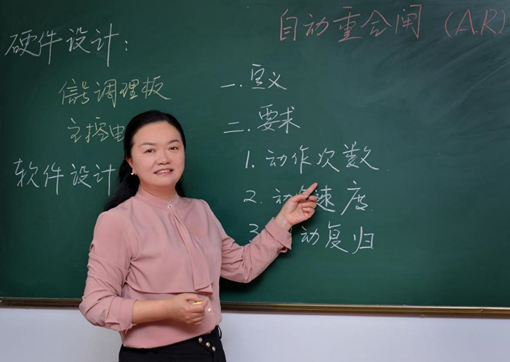 自动重合闸（A.R）
硬件设计：
信号调理板
主控电
软件设计
一. 定义
二. 要求
1. 动作次数
2. 动 速度
3. 动复归